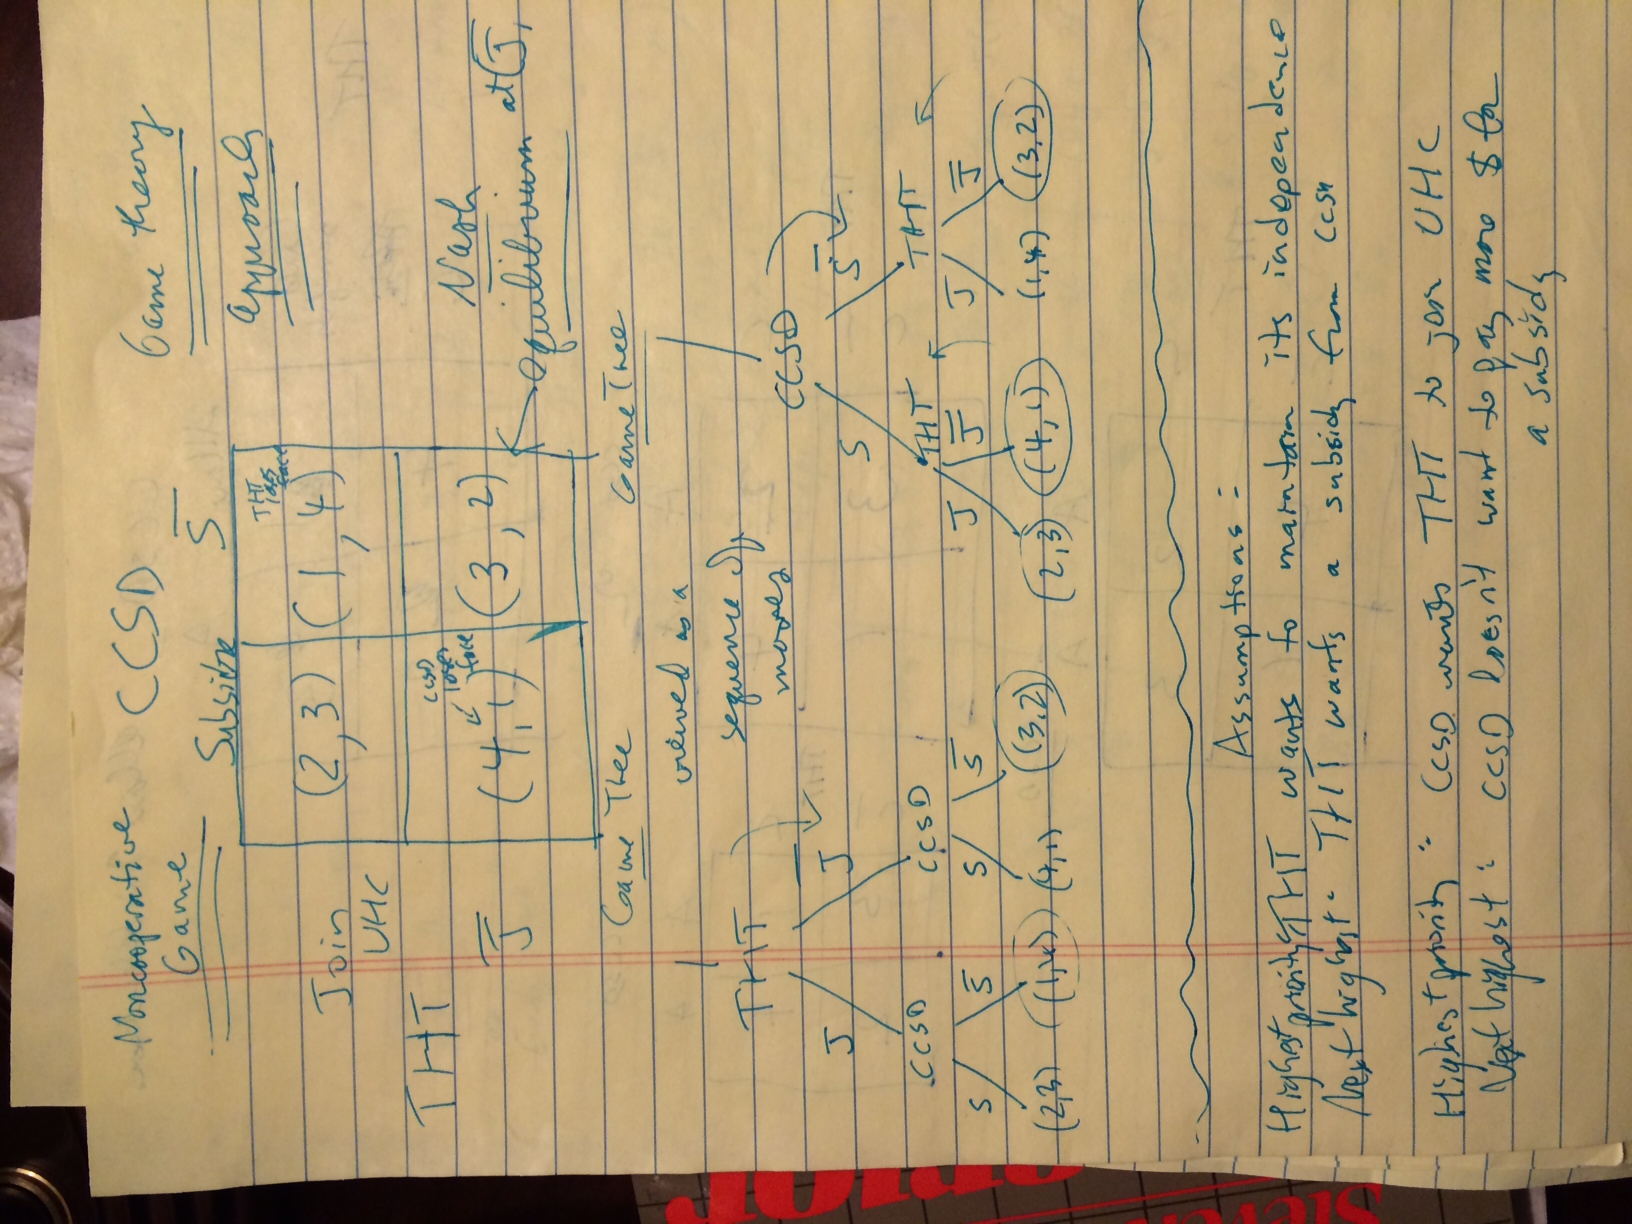 Noncooperative Game CCSD Game theory
Approach
Subsidize S̅
Join UHC (2,3) (1,4) THT loses face
THT
J̅ (4,1) CCSD loses face (3,2)
Nash equilibrium at (J̅,
Game Tree viewed as a sequence of moves Game Tree
THT CCSD
J J̅ S S̅
CCSD CCSD THT THT
S S̅ S S̅ J J̅ J J̅
(2,3) (1,4) (4,1) (3,2) (2,3) (4,1) (1,4) (3,2)
Assumptions:
Highest priority: THT wants to maintain its independence
Next highest: THT wants a subsidy from CCSD
Highest priority: CCSD wants THT to join UHC
Next highest: CCSD doesn't want to pay more $ for
a subsidy